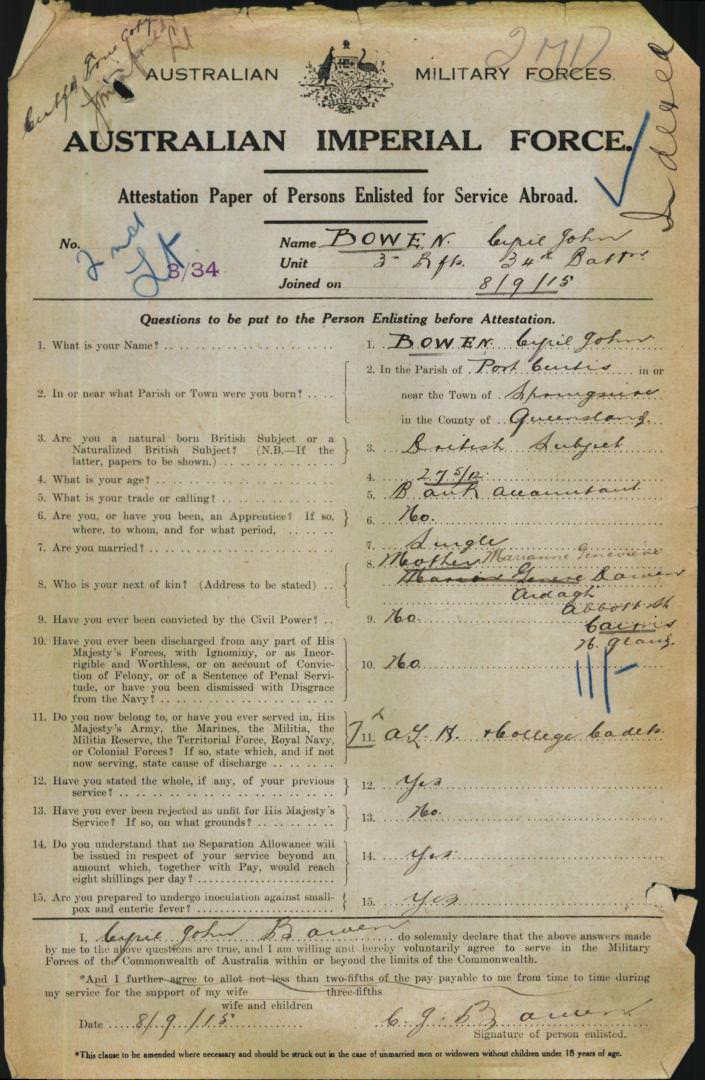 Certified True Copy
Lt
2 MD
Indexed
AUSTRALIAN MILITARY FORCES.
AUSTRALIAN IMPERIAL FORCE.
Attestation Paper of Persons Enlisted for Service Abroad.
No. 2nd Lt 3/34
Name BOWEN. Cyril John
Unit 3 Rfts. 34th Battn.
Joined on 8/9/15
Questions to be put to the Person Enlisting before Attestation.
1. What is your Name? 1. BOWEN Cyril John
2. In or near what Parish or Town were you born? 2. In the Parish of Port Curtis in or
near the Town of Springsure
in the County of Queensland.
3. Are you a natural born British Subject or a
Naturalized British Subject? (N.B.—If the
latter, papers to be shown.) 3. British Subject
4. What is your age? 4. 27 5/12
5. What is your trade or calling? 5. Bank Accountant
6. Are you, or have you been, an Apprentice? If so,
where, to whom, and for what period, 6. No.
7. Are you married? 7. Single
8. Who is your next of kin? (Address to be stated) 8. Mother Marianne Genevieve
Bowen
Ardagh
Abbott St
Cairns
N. Qland.
9. Have you ever been convicted by the Civil Power? 9. No
10. Have you ever been discharged from any part of His
Majesty's Forces, with Ignominy, or as Incor-
rigible and Worthless, or on account of Convic-
tion of Felony, or of a Sentence of Penal Servi-
tude, or have you been dismissed with Disgrace
from the Navy? 10. No
11. Do you now belong to, or have you ever served in, His
Majesty's Army, the Marines, the Militia, the
Militia Reserve, the Territorial Force, Royal Navy,
or Colonial Forces? If so, state which, and if not
now serving, state cause of discharge 11. A.L.H. + College Cadets
12. Have you stated the whole, if any, of your previous
service? 12. Yes
13. Have you ever been rejected as unfit for His Majesty's
Service? If so, on what grounds? 13. No.
14. Do you understand that no Separation Allowance will
be issued in respect of your service beyond an
amount which, together with Pay, would reach
eight shillings per day? 14. Yes
15. Are you prepared to undergo inoculation against small-
pox and enteric fever? 15. Yes
I, Cyril John Bowen do solemnly declare that the above answers made
by me to the above questions are true, and I am willing and hereby voluntarily agree to serve in the Military
Forces of the Commonwealth of Australia within or beyond the limits of the Commonwealth.
*And I further agree to allot not less than two-fifths of the pay payable to me from time to time during
my service for the support of my wife three-fifths
wife and children
Date 8/9/15 C. J. Bowen
Signature of person enlisted.
*This clause to be amended where necessary and should be struck out in the case of unmarried men or widowers without children under 18 years of age.